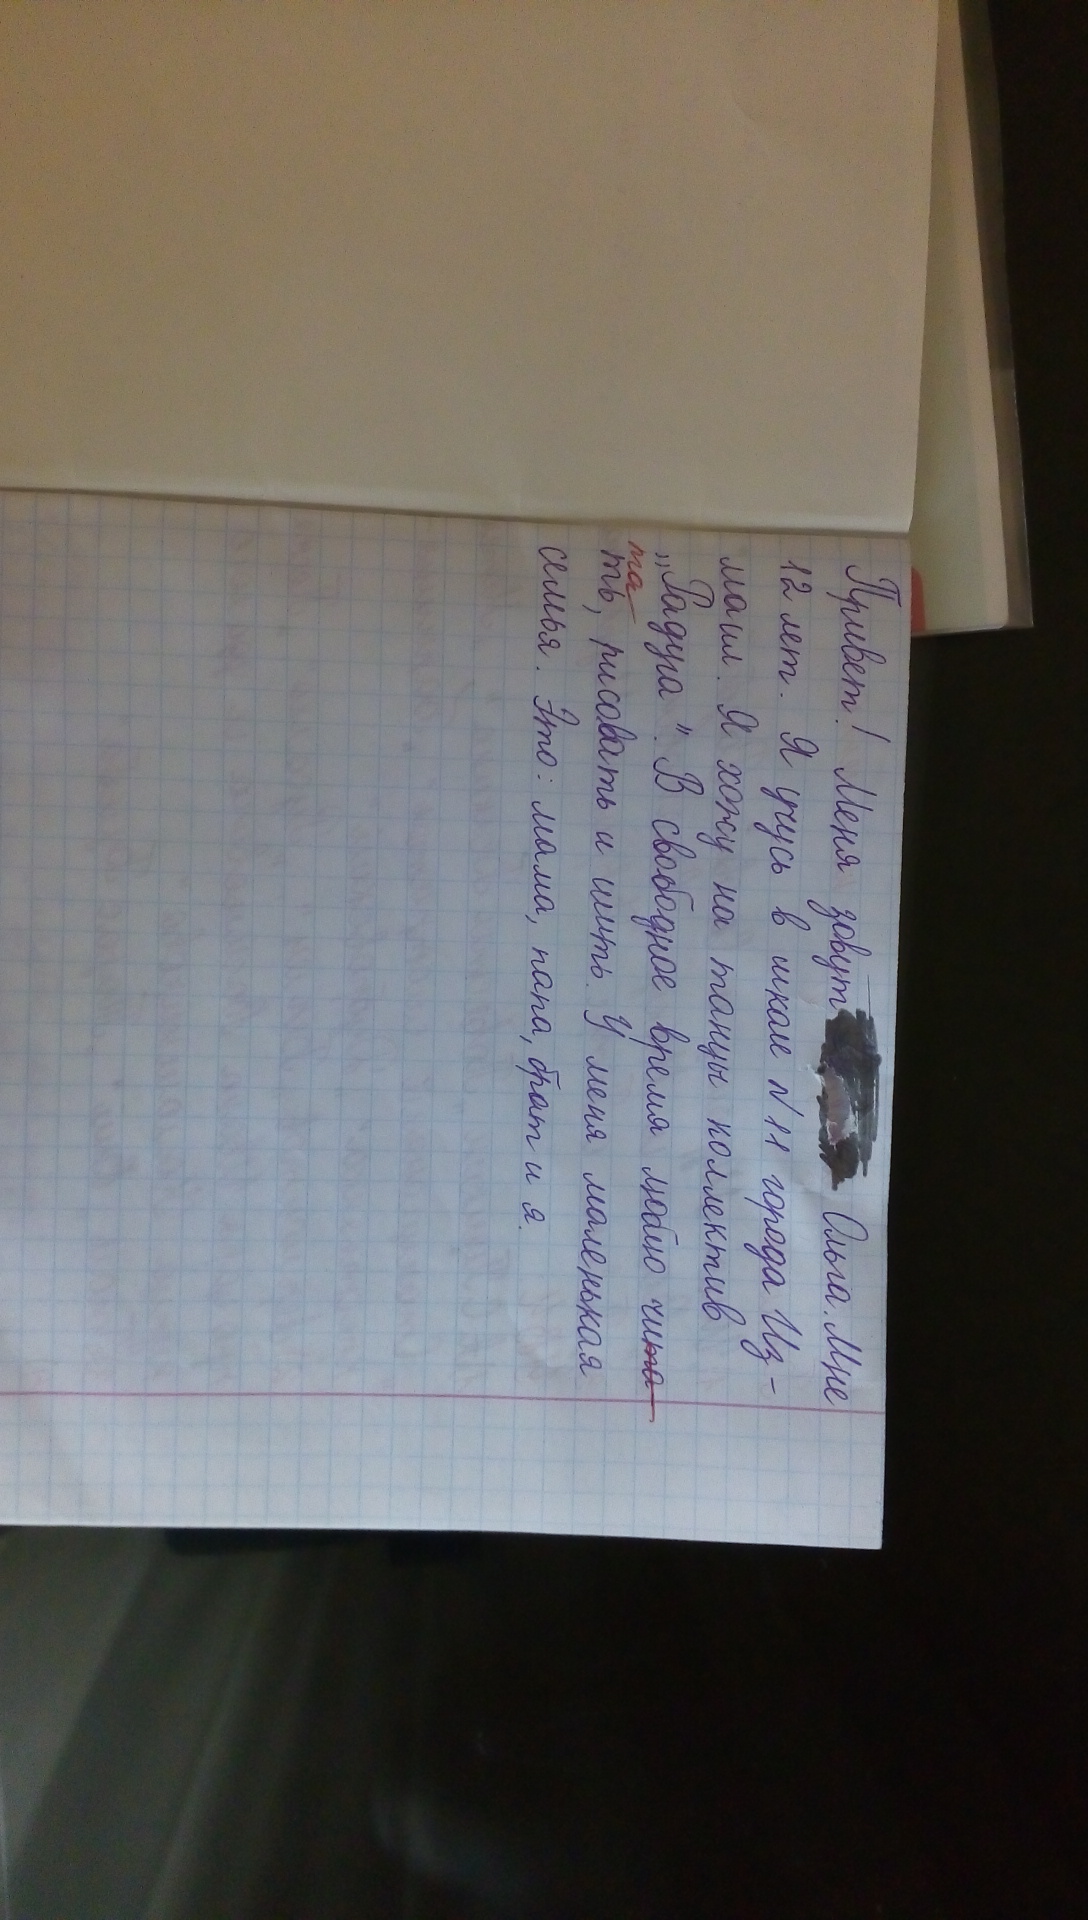 Привет! Меня зовут Ольга. Мне
12 лет. Я учусь в школе N 11 города Из-
маил. Я хожу на танцы коллектив
„Радуга". В свободное время люблю чита
та
ть, рисовать и шить. У меня маленькая
семья. Это: мама, папа, брат и я.